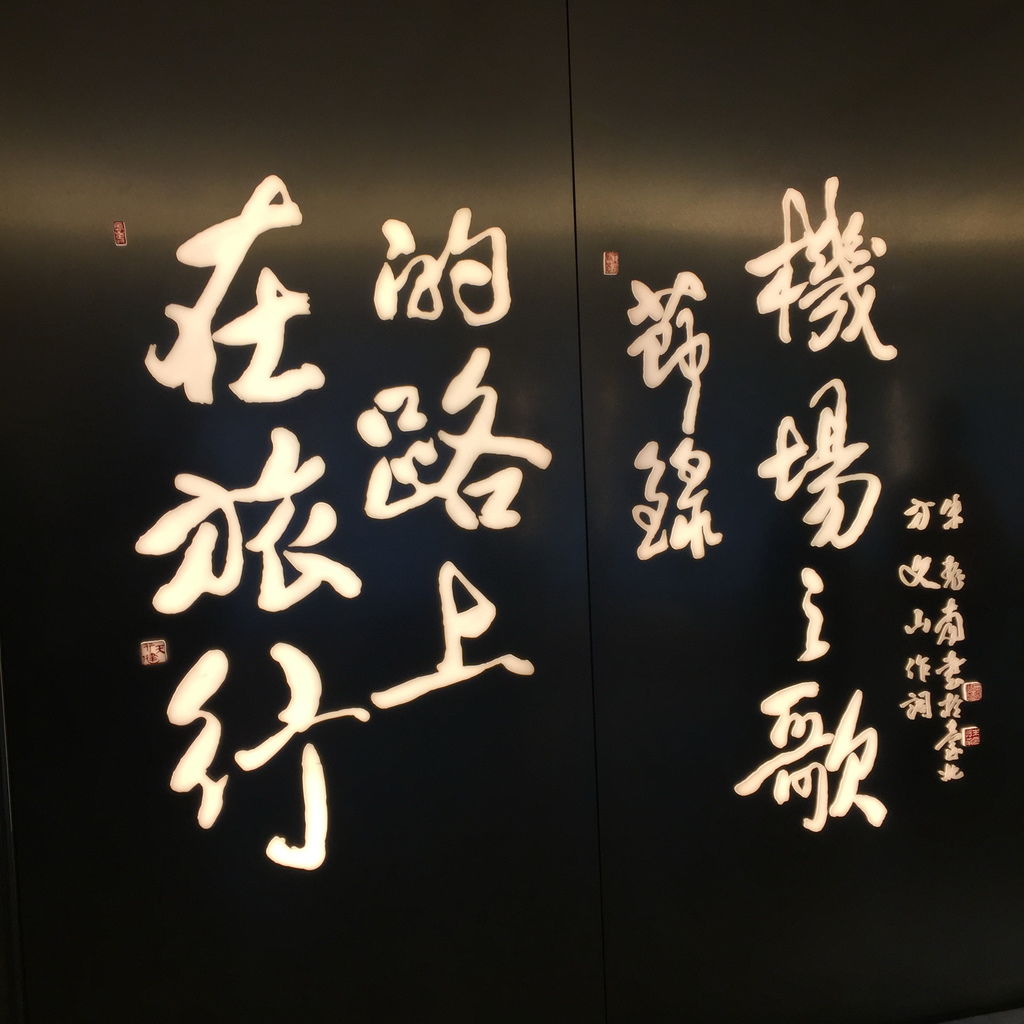 在旅行
的路上
機場之歌
節錄
方文山作詞
朱振南書於臺北